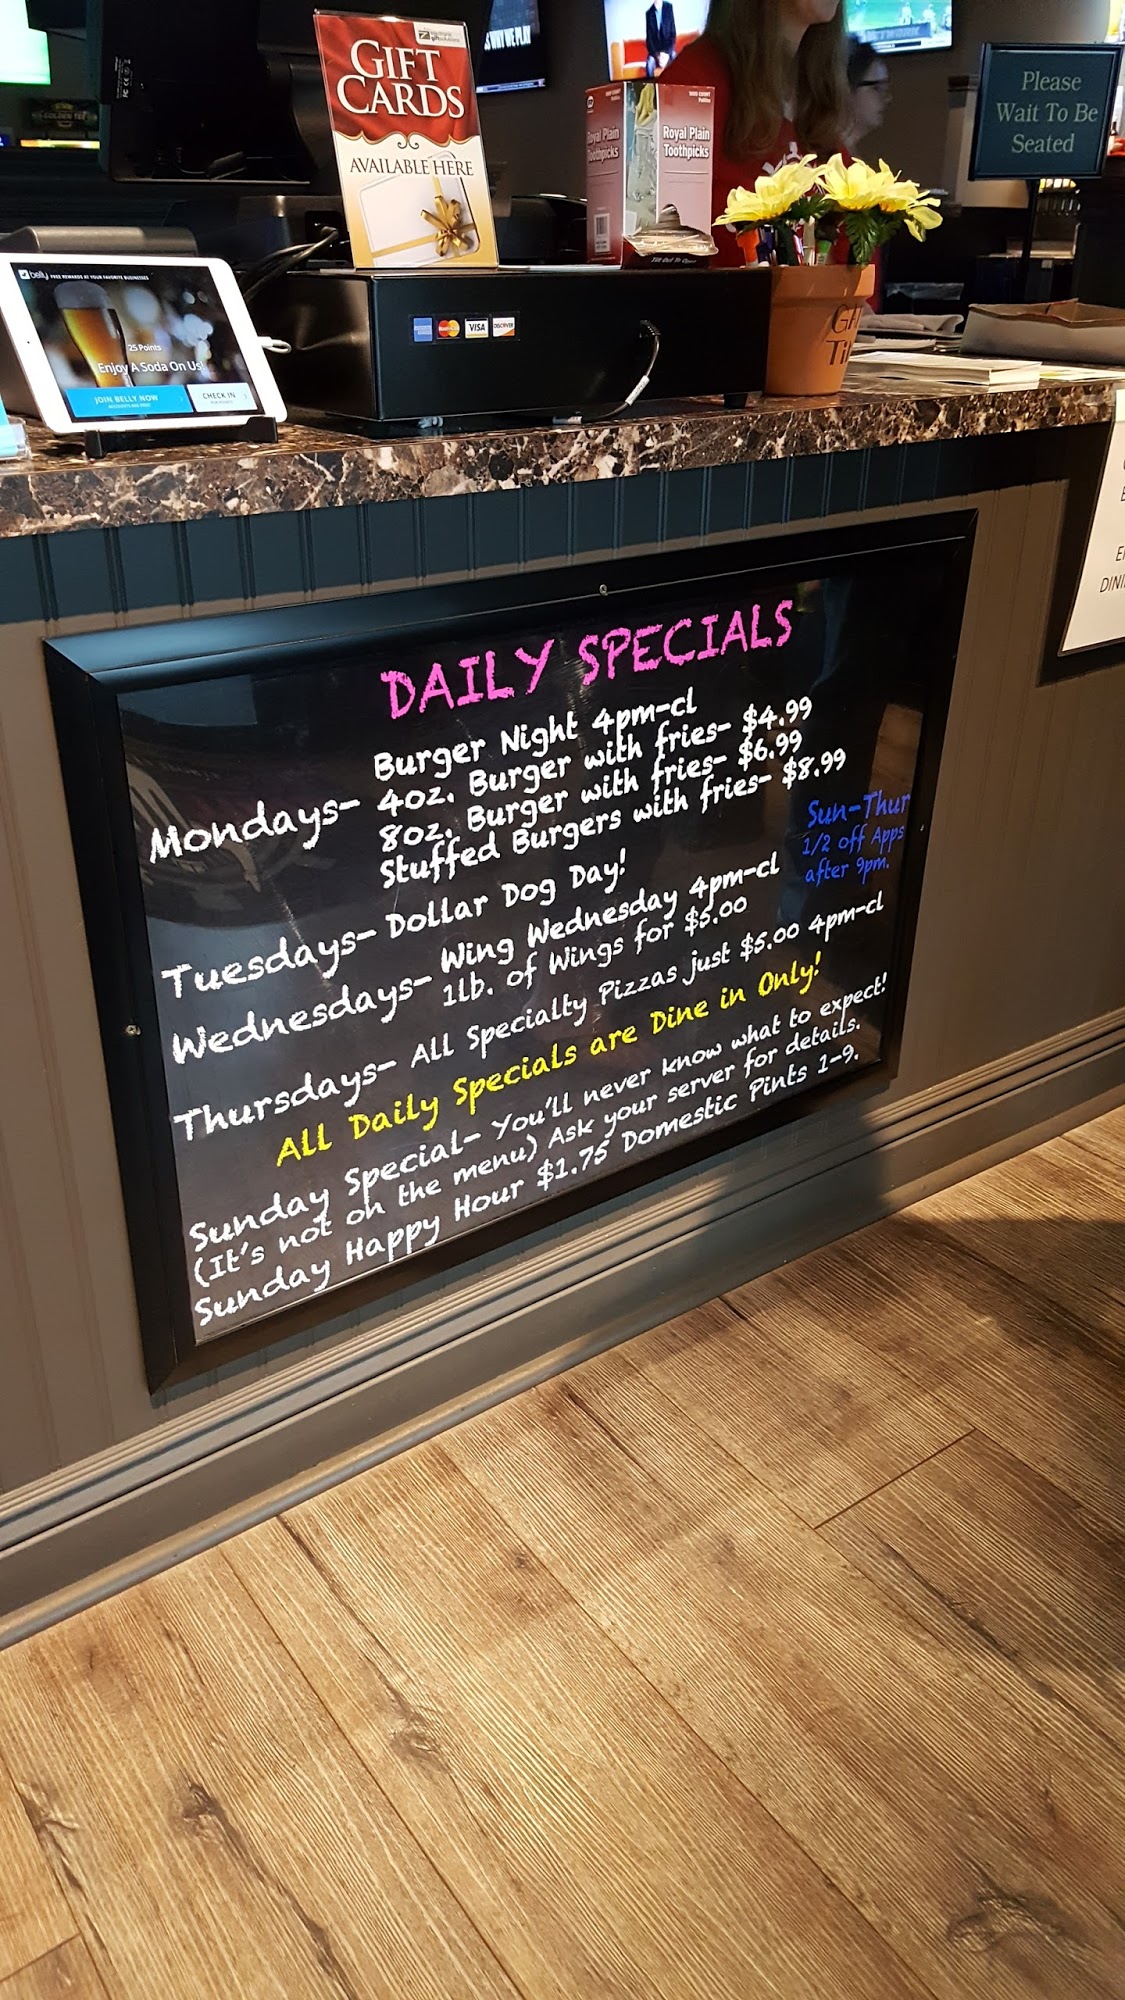 GIFT
CARDS
AVAILABLE HERE
WHY WE PLAY
Royal Plain
Toothpicks
Royal Plain
Toothpicks
Please
Wait To Be
Seated
belly FREE REWARDS AT YOUR FAVORITE BUSINESSES
25 Points
Enjoy A Soda On Us!
JOIN BELLY NOW
CHECK IN
VISA
DISCOVER
DAILY SPECIALS
Burger Night 4pm-cl
Mondays- 4oz. Burger with fries- $4.99
8oz. Burger with fries- $6.99
Stuffed Burgers with fries- $8.99
Sun-Thur
1/2 off Apps
after 9pm.
Tuesdays- Dollar Dog Day!
Wednesdays- Wing Wednesday 4pm-cl
1lb. of Wings for $5.00
Thursdays- All Specialty Pizzas just $5.00 4pm-cl
All Daily Specials are Dine in Only!
Sunday Special- You'll never know what to expect!
(It's not on the menu) Ask your server for details.
Sunday Happy Hour $1.75 Domestic Pints 1-9.